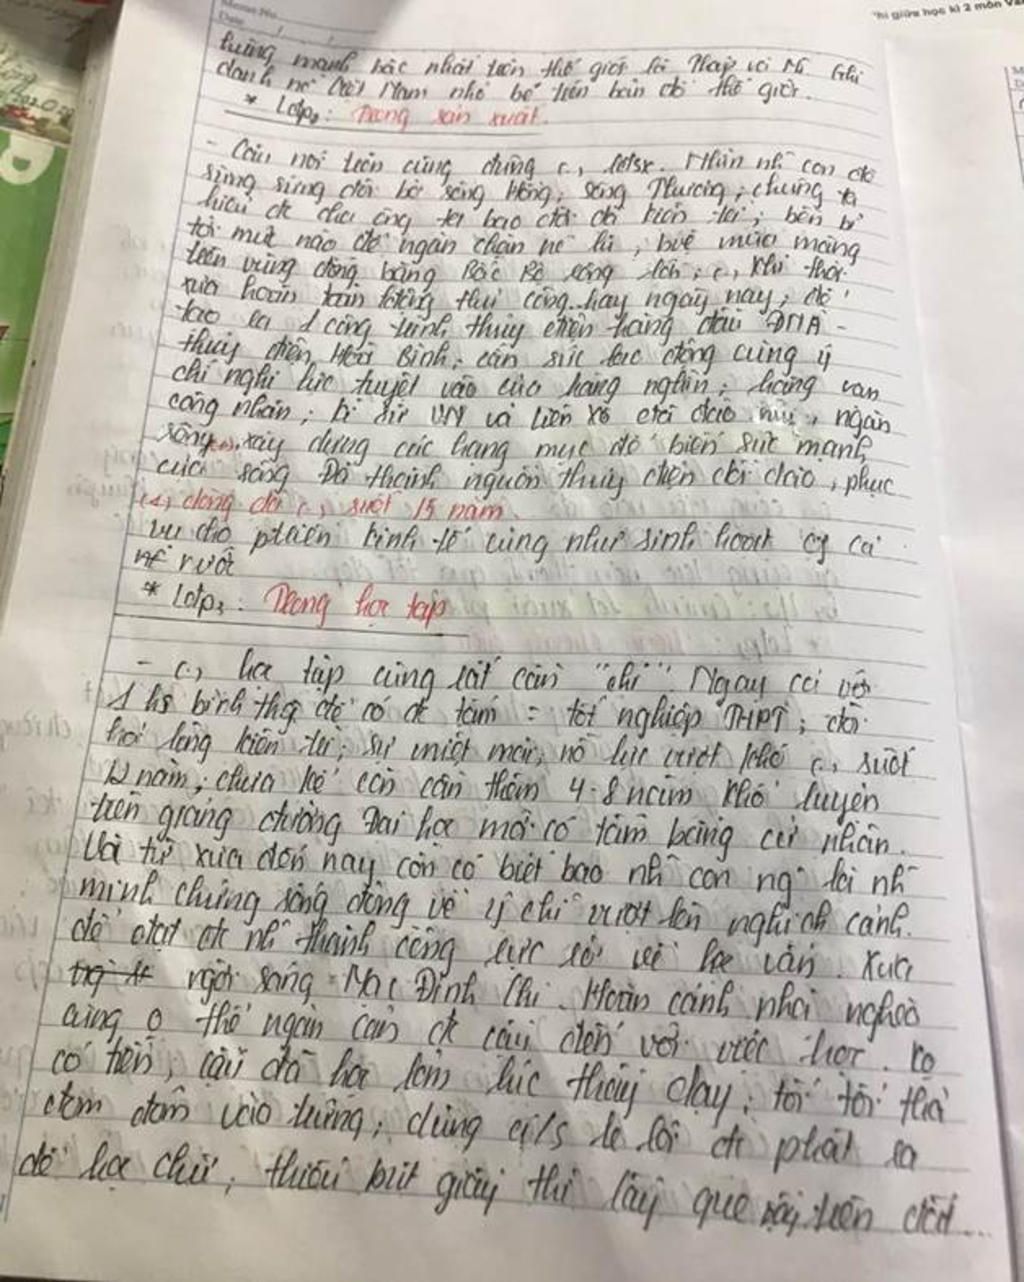 Memo No.
Date / /
Thi giữa học kì 2 môn Vă
tường mạnh bậc nhất trên thế giới là Pháp và Mĩ. Ghi
danh nc Việt Nam nhỏ bé trên bản đồ thế giới.
* Lđp₂: Trong sản xuất.
- Câu nói trên cũng đúng (.) lđsx. Nhìn nh~ con đê
sừng sững đôi bờ sông Hồng, sông Thương, chúng ta
hiểu đc cha ông ta bao đời đã kiên trì, bền bỉ
tới mức nào để ngăn chặn nc lũ, bvệ mùa màng
trên vùng đồng bằng Bắc Bộ rộng lớn, (.) khi thời
xưa hoàn toàn bằng thủ công. hay ngày nay, để
tạo ra 1 công trình thủy điện hàng đầu ĐNA -
thủy điện Hòa Bình, cần sức lao động cùng ý
chí nghị lực tuyệt vào của hàng nghìn, hàng vạn
công nhân, kĩ sư VN và Liên Xô đã đào núi, ngăn
sông, xây dựng các hạng mục để biến sức mạnh
của sông Đà thành nguồn thủy điện dồi dào, phục
(.) ròng rã (.) suốt 15 năm.
vụ cho ptriển kinh tế cũng như sinh hoạt của cả
nc rười
* Lđp₃: Trong học tập
- (.) học tập cũng rất cần "chí". Ngay cả với
1 hs bình thg để có đc tấm = tốt nghiệp THPT, đòi
hỏi lòng kiên trì, sự miệt mài, nỗ lực vượt khó (.) suốt
12 năm, chưa kể còn cần thêm 4-8 năm khổ luyện
trên giảng đường Đại học mới có tấm bằng cử nhân.
Và từ xưa đến nay còn có biết bao nh~ con ng là nh~
minh chứng sống động về ý chí vượt lên nghịch cảnh.
để đạt đc nh~ thành công rực rỡ về học vấn. Xưa
ngời sáng Mạc Đĩnh Chi. Hoàn cảnh nhà nghèo
cũng o thể ngăn cản đc cậu đến với việc học. ko
có tiền, cậu đã học lỏm lúc thầy dạy, tối tối thả
đom đóm vào trứng, dùng a/s le lói đc phát ra
để học chữ, thiếu bút giấy thì lấy que vạy trên đất...